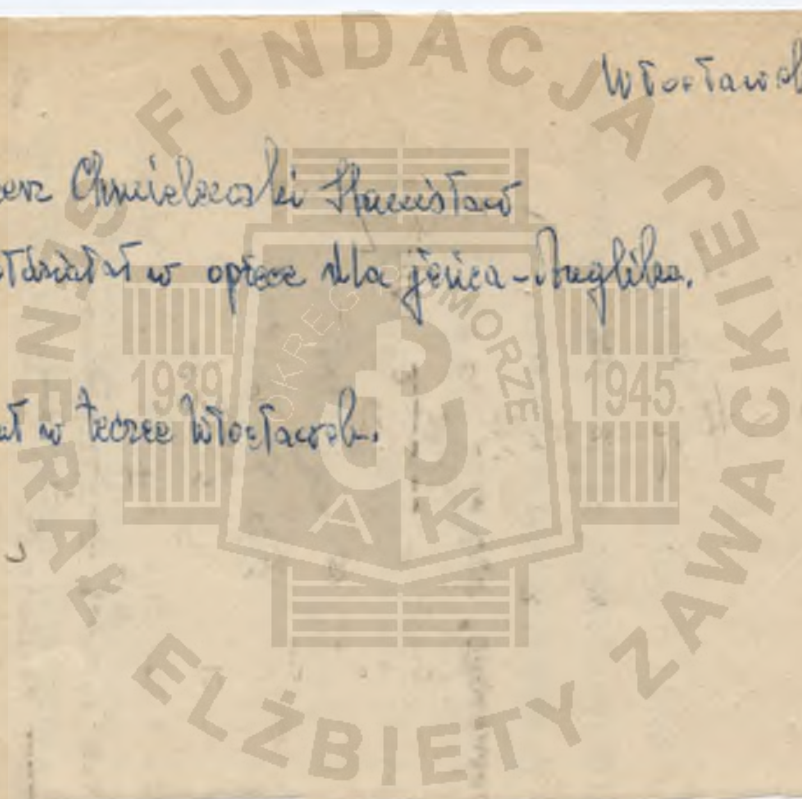 Włocławek
Chmielewski Stanisław
w opiece dla jeńca-Anglika.
w teczce Włocławek.
FUNDACJA
GENERAŁ ELŻBIETY ZAWACKIEJ
OKRĘG POMORZE
1939
1945
AK